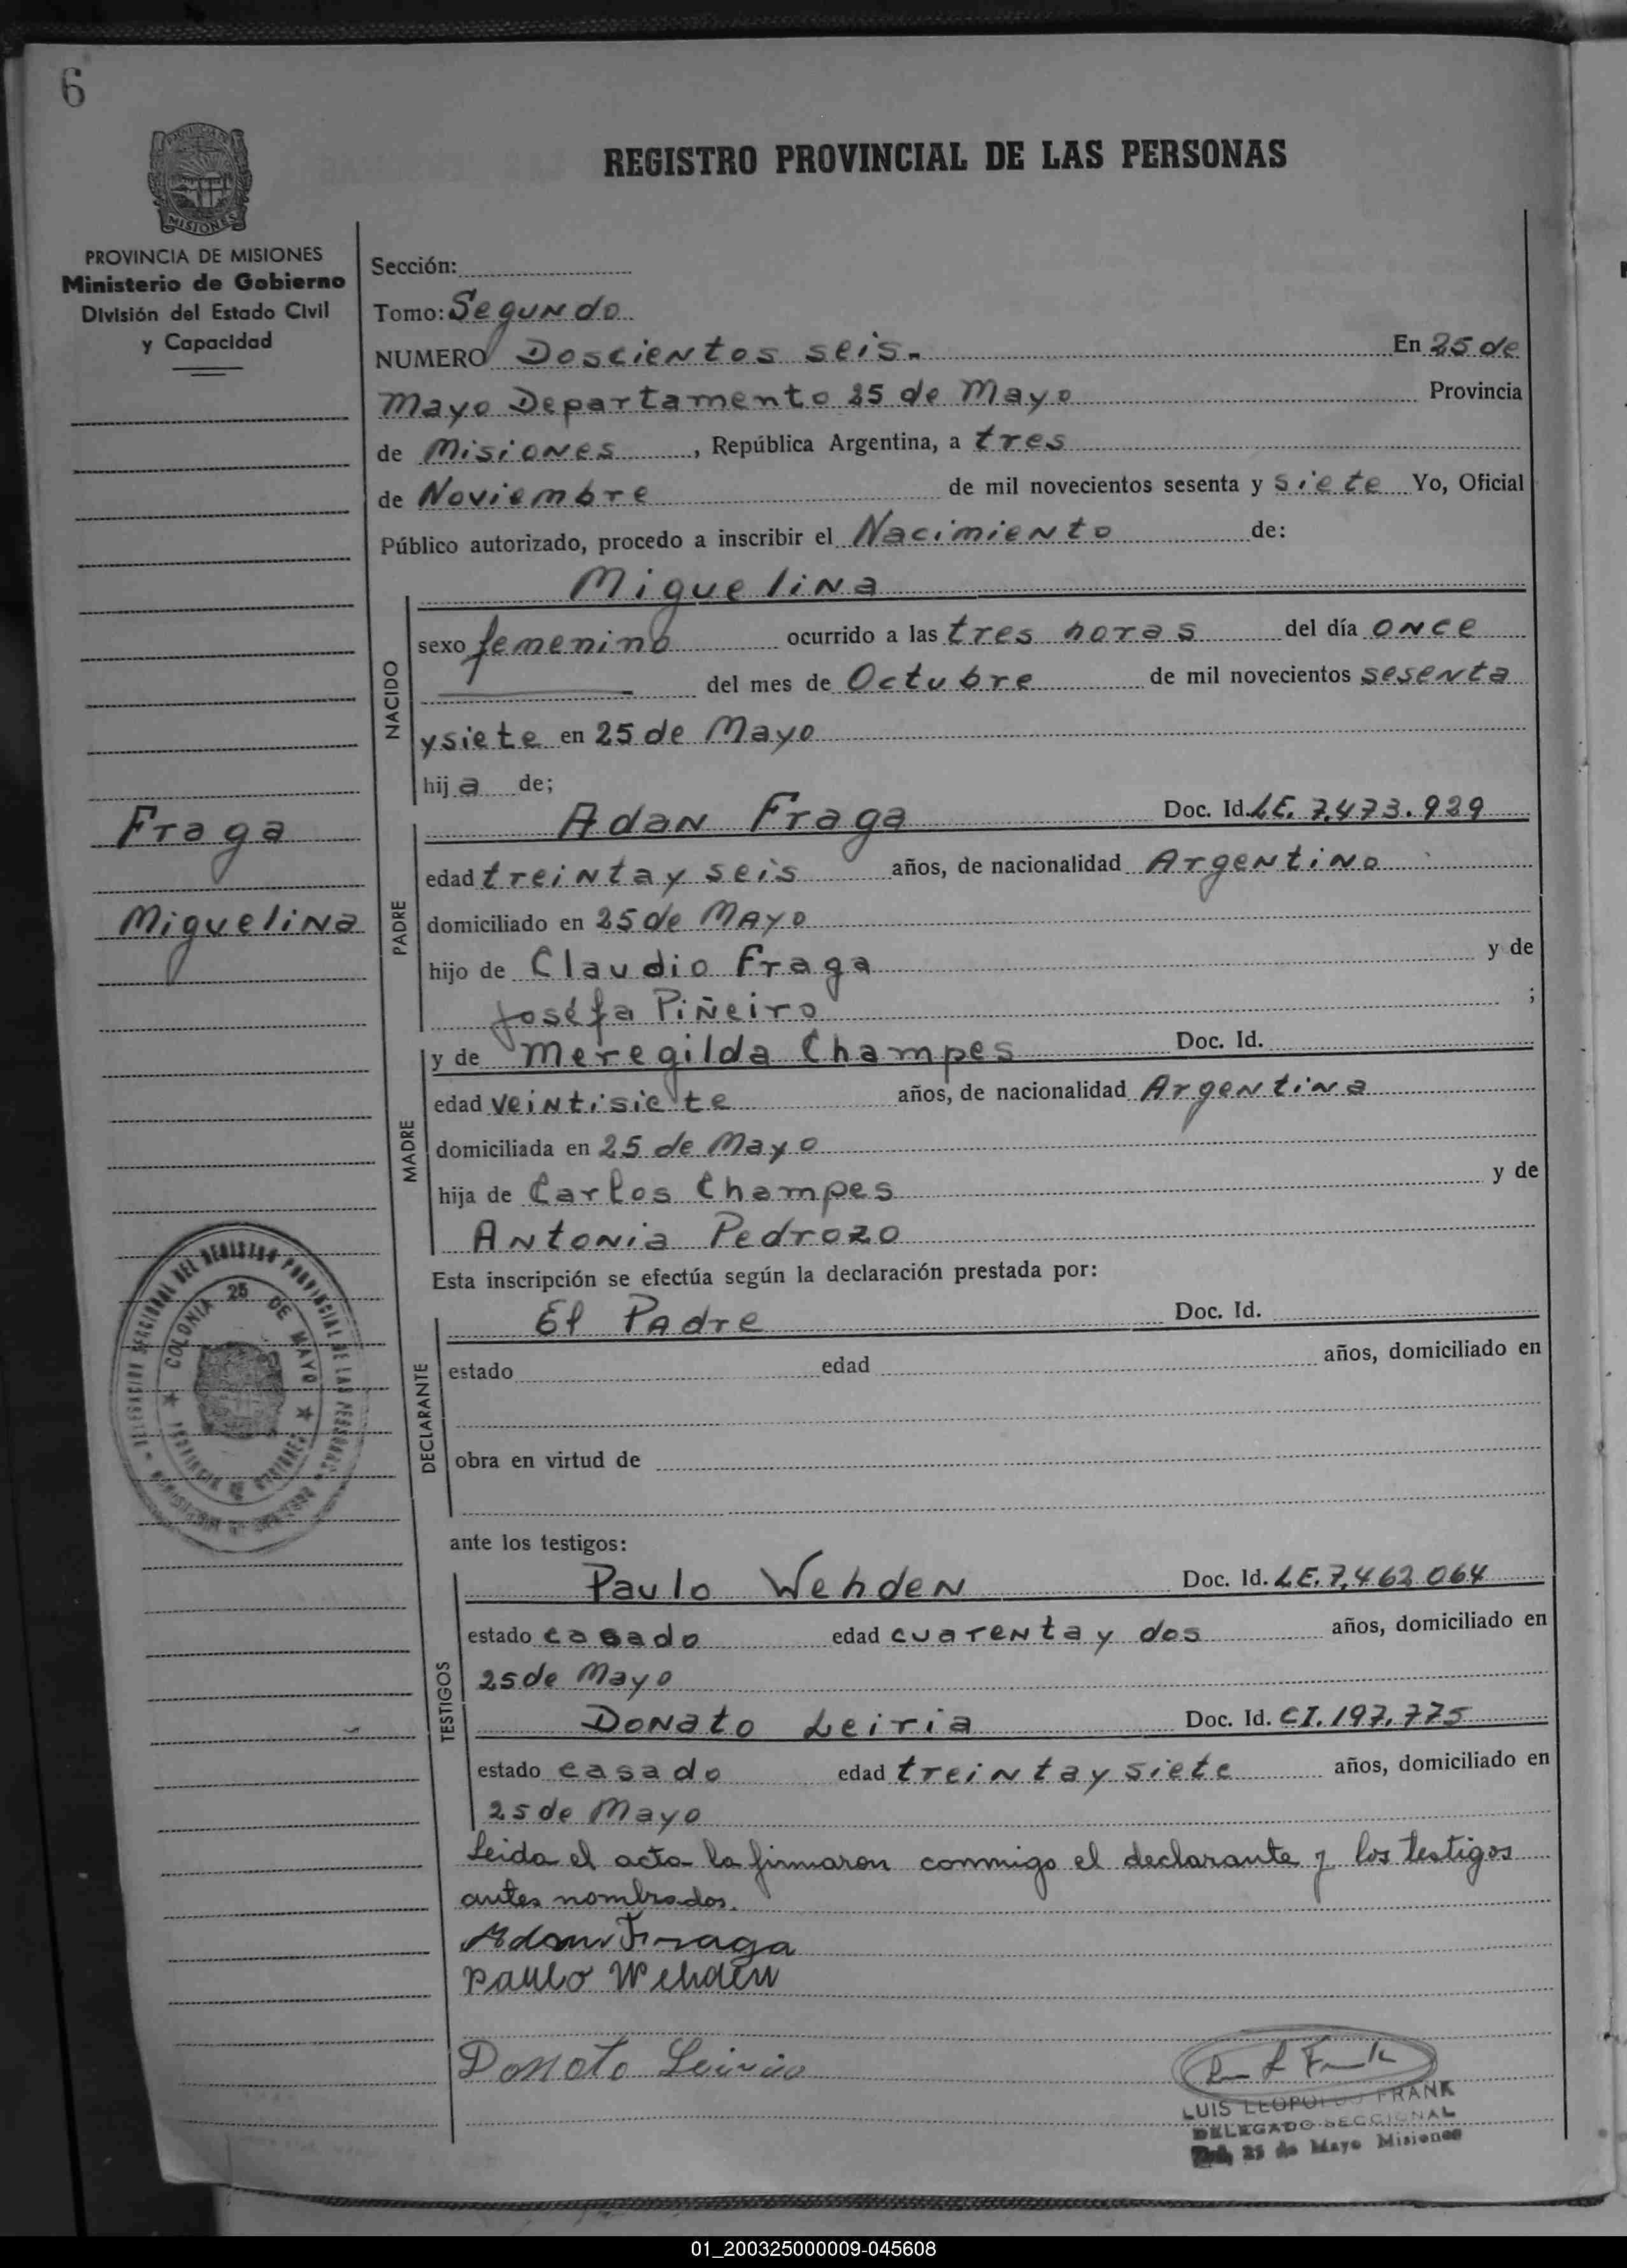 6
MISIONES
PROVINCIA DE MISIONES
Ministerio de Gobierno
División del Estado Civil
y Capacidad
REGISTRO PROVINCIAL DE LAS PERSONAS
Sección:
Tomo: Segundo
NUMERO Doscientos seis. En 25 de
Mayo Departamento 25 de Mayo Provincia
de Misiones, República Argentina, a tres
de Noviembre de mil novecientos sesenta y siete Yo, Oficial
Público autorizado, procedo a inscribir el Nacimiento de:
Miguelina
NACIDO
sexo femenino ocurrido a las tres horas del día once
del mes de Octubre de mil novecientos sesenta
y siete en 25 de Mayo
hija de;
Fraga
Miguelina
PADRE
Adan Fraga Doc. Id. LE. 7.473.929
edad treinta y seis años, de nacionalidad Argentino
domiciliado en 25 de Mayo
hijo de Claudio Fraga y de
Joséfa Piñeiro ;
MADRE
y de Meregilda Champes Doc. Id.
edad veintisiete años, de nacionalidad Argentina
domiciliada en 25 de Mayo
hija de Carlos Champes y de
Antonia Pedrozo
Esta inscripción se efectúa según la declaración prestada por:
DECLARANTE
El Padre Doc. Id.
estado edad años, domiciliado en
obra en virtud de
DELEGACION SECCIONAL DEL REGISTRO PROVINCIAL DE LAS PERSONAS
COLONIA 25 DE MAYO
PROVINCIA DE MISIONES
ante los testigos:
TESTIGOS
Paulo Wehden Doc. Id. LE. 7.462.064
estado casado edad cuarenta y dos años, domiciliado en
25 de Mayo
Donato Leiria Doc. Id. CI. 197.775
estado casado edad treinta y siete años, domiciliado en
25 de Mayo
Leida el acta la firmaron conmigo el declarante y los testigos
antes nombrados.
Adam Fraga
Paulo Wehden
Donato Leiria
LUIS LEOPOLDO FRANK
DELEGADO SECCIONAL
Col. 25 de Mayo Misiones
01_200325000009-045608